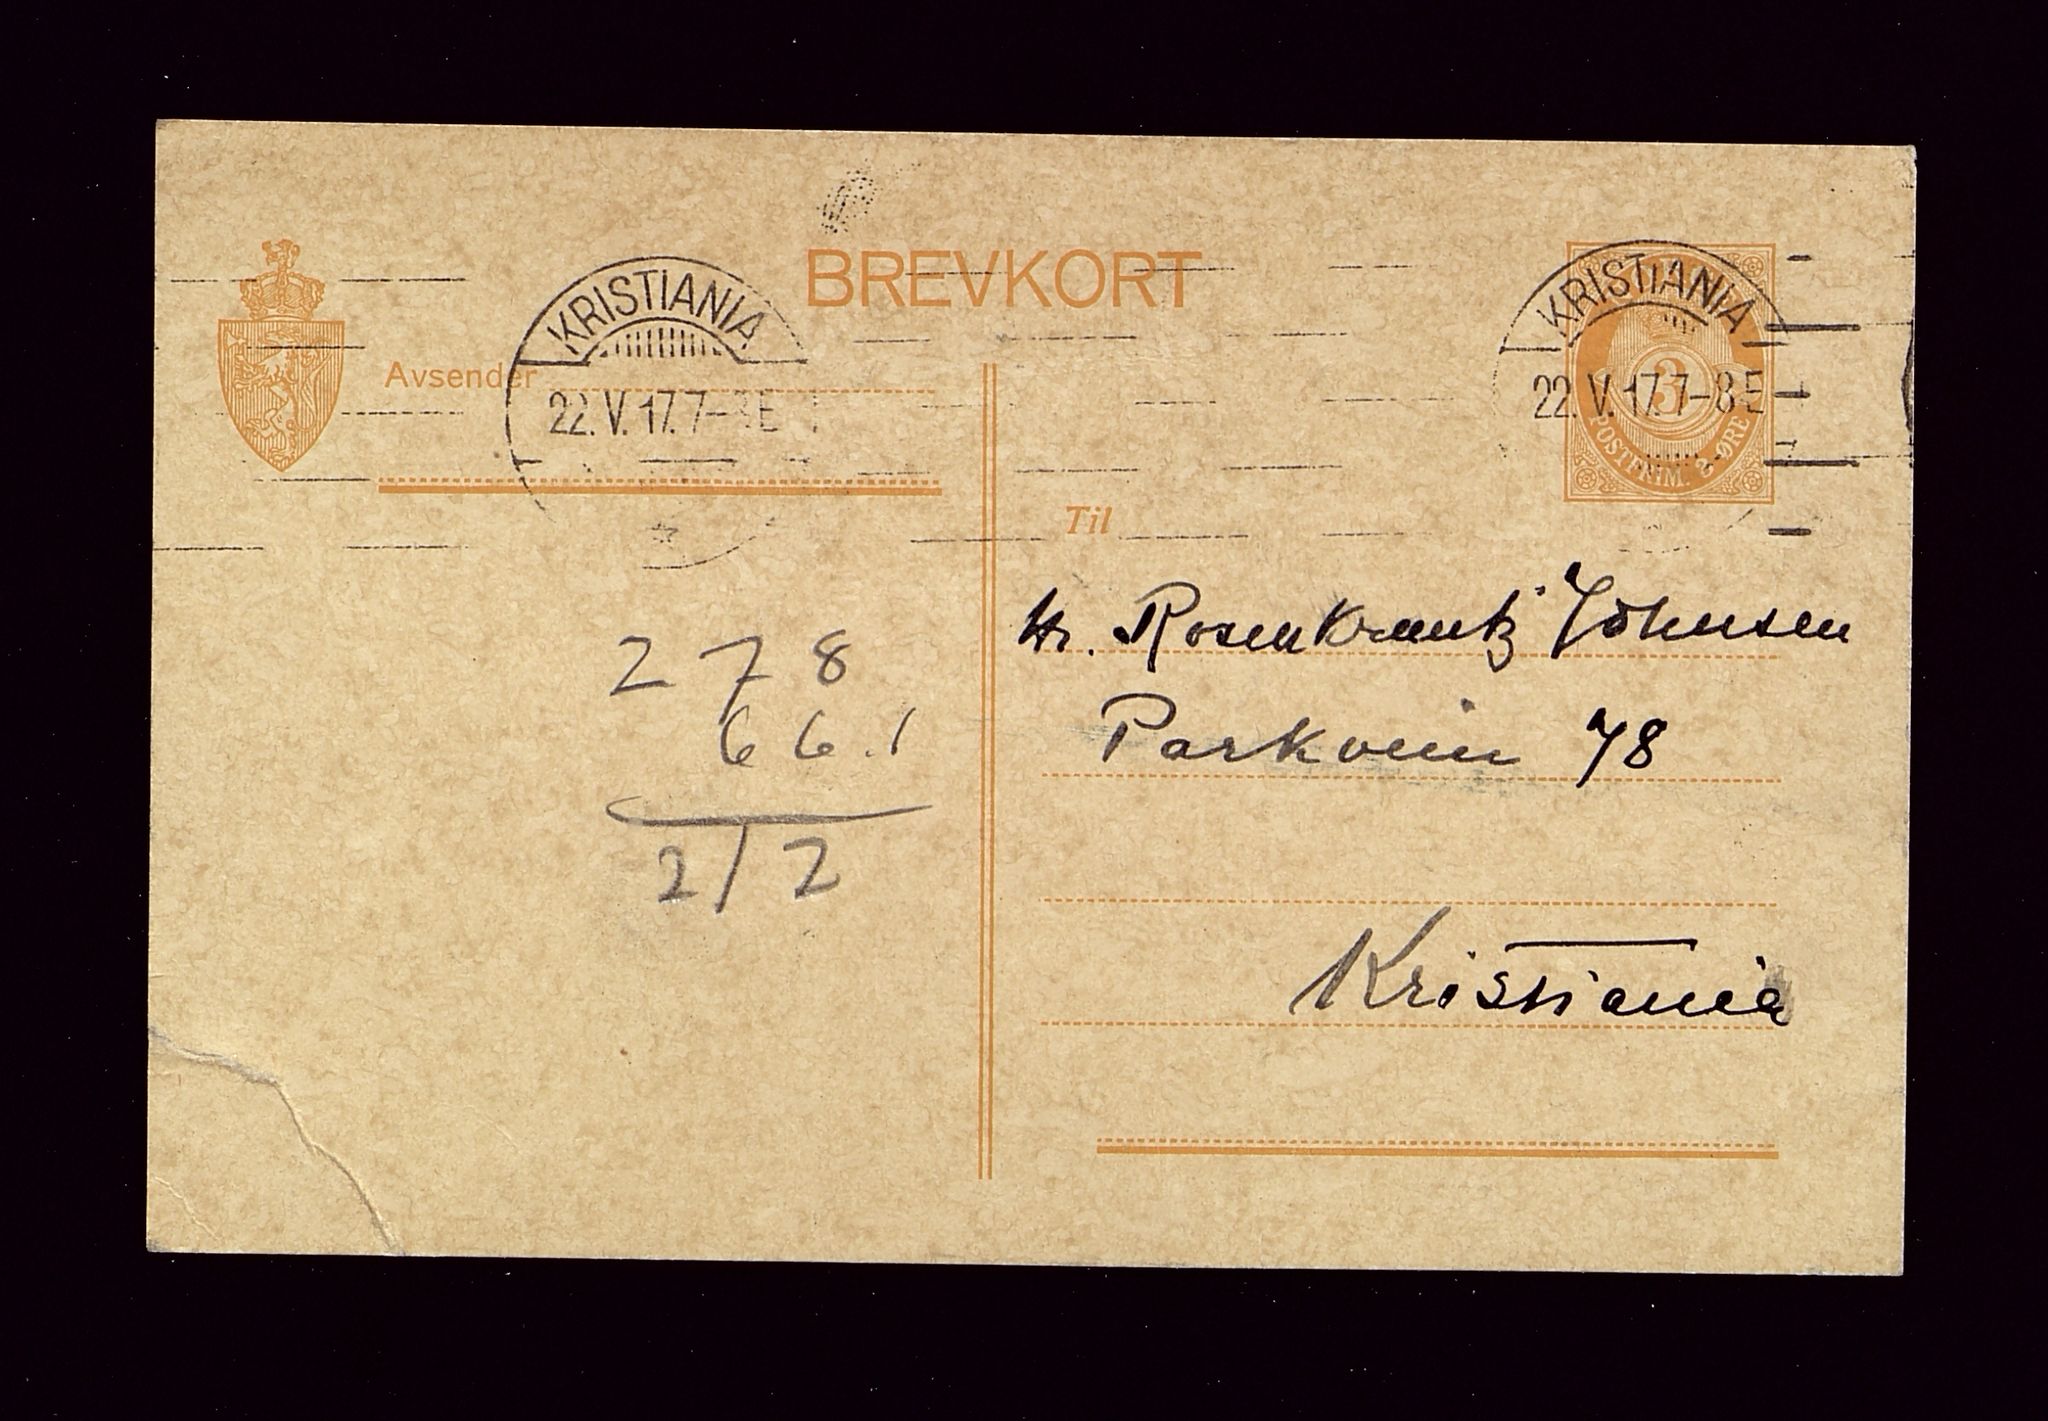 BREVKORT
KRISTIANIA
22.V.17.7-8E
KRISTIANIA
22.V.17.7-8E
3
POSTFRIM. 3 ØRE
Avsender
Til
Hr. Rosenkrantz Johnsen
Parkveien 78
Kristiania
278
66.1
212